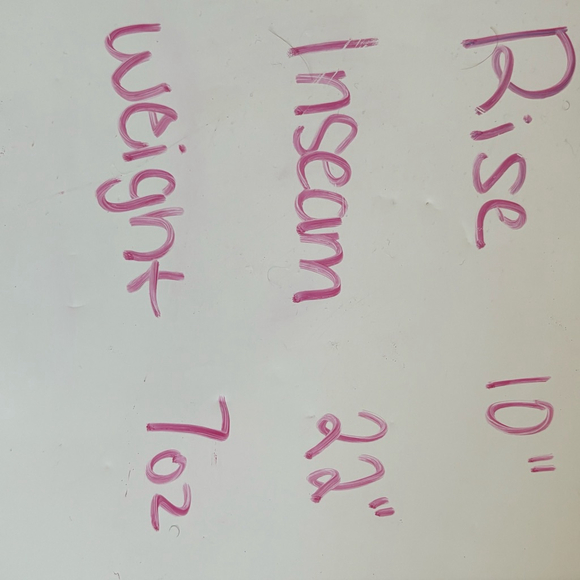 Rise 10"
Inseam 22"
Weight 7oz